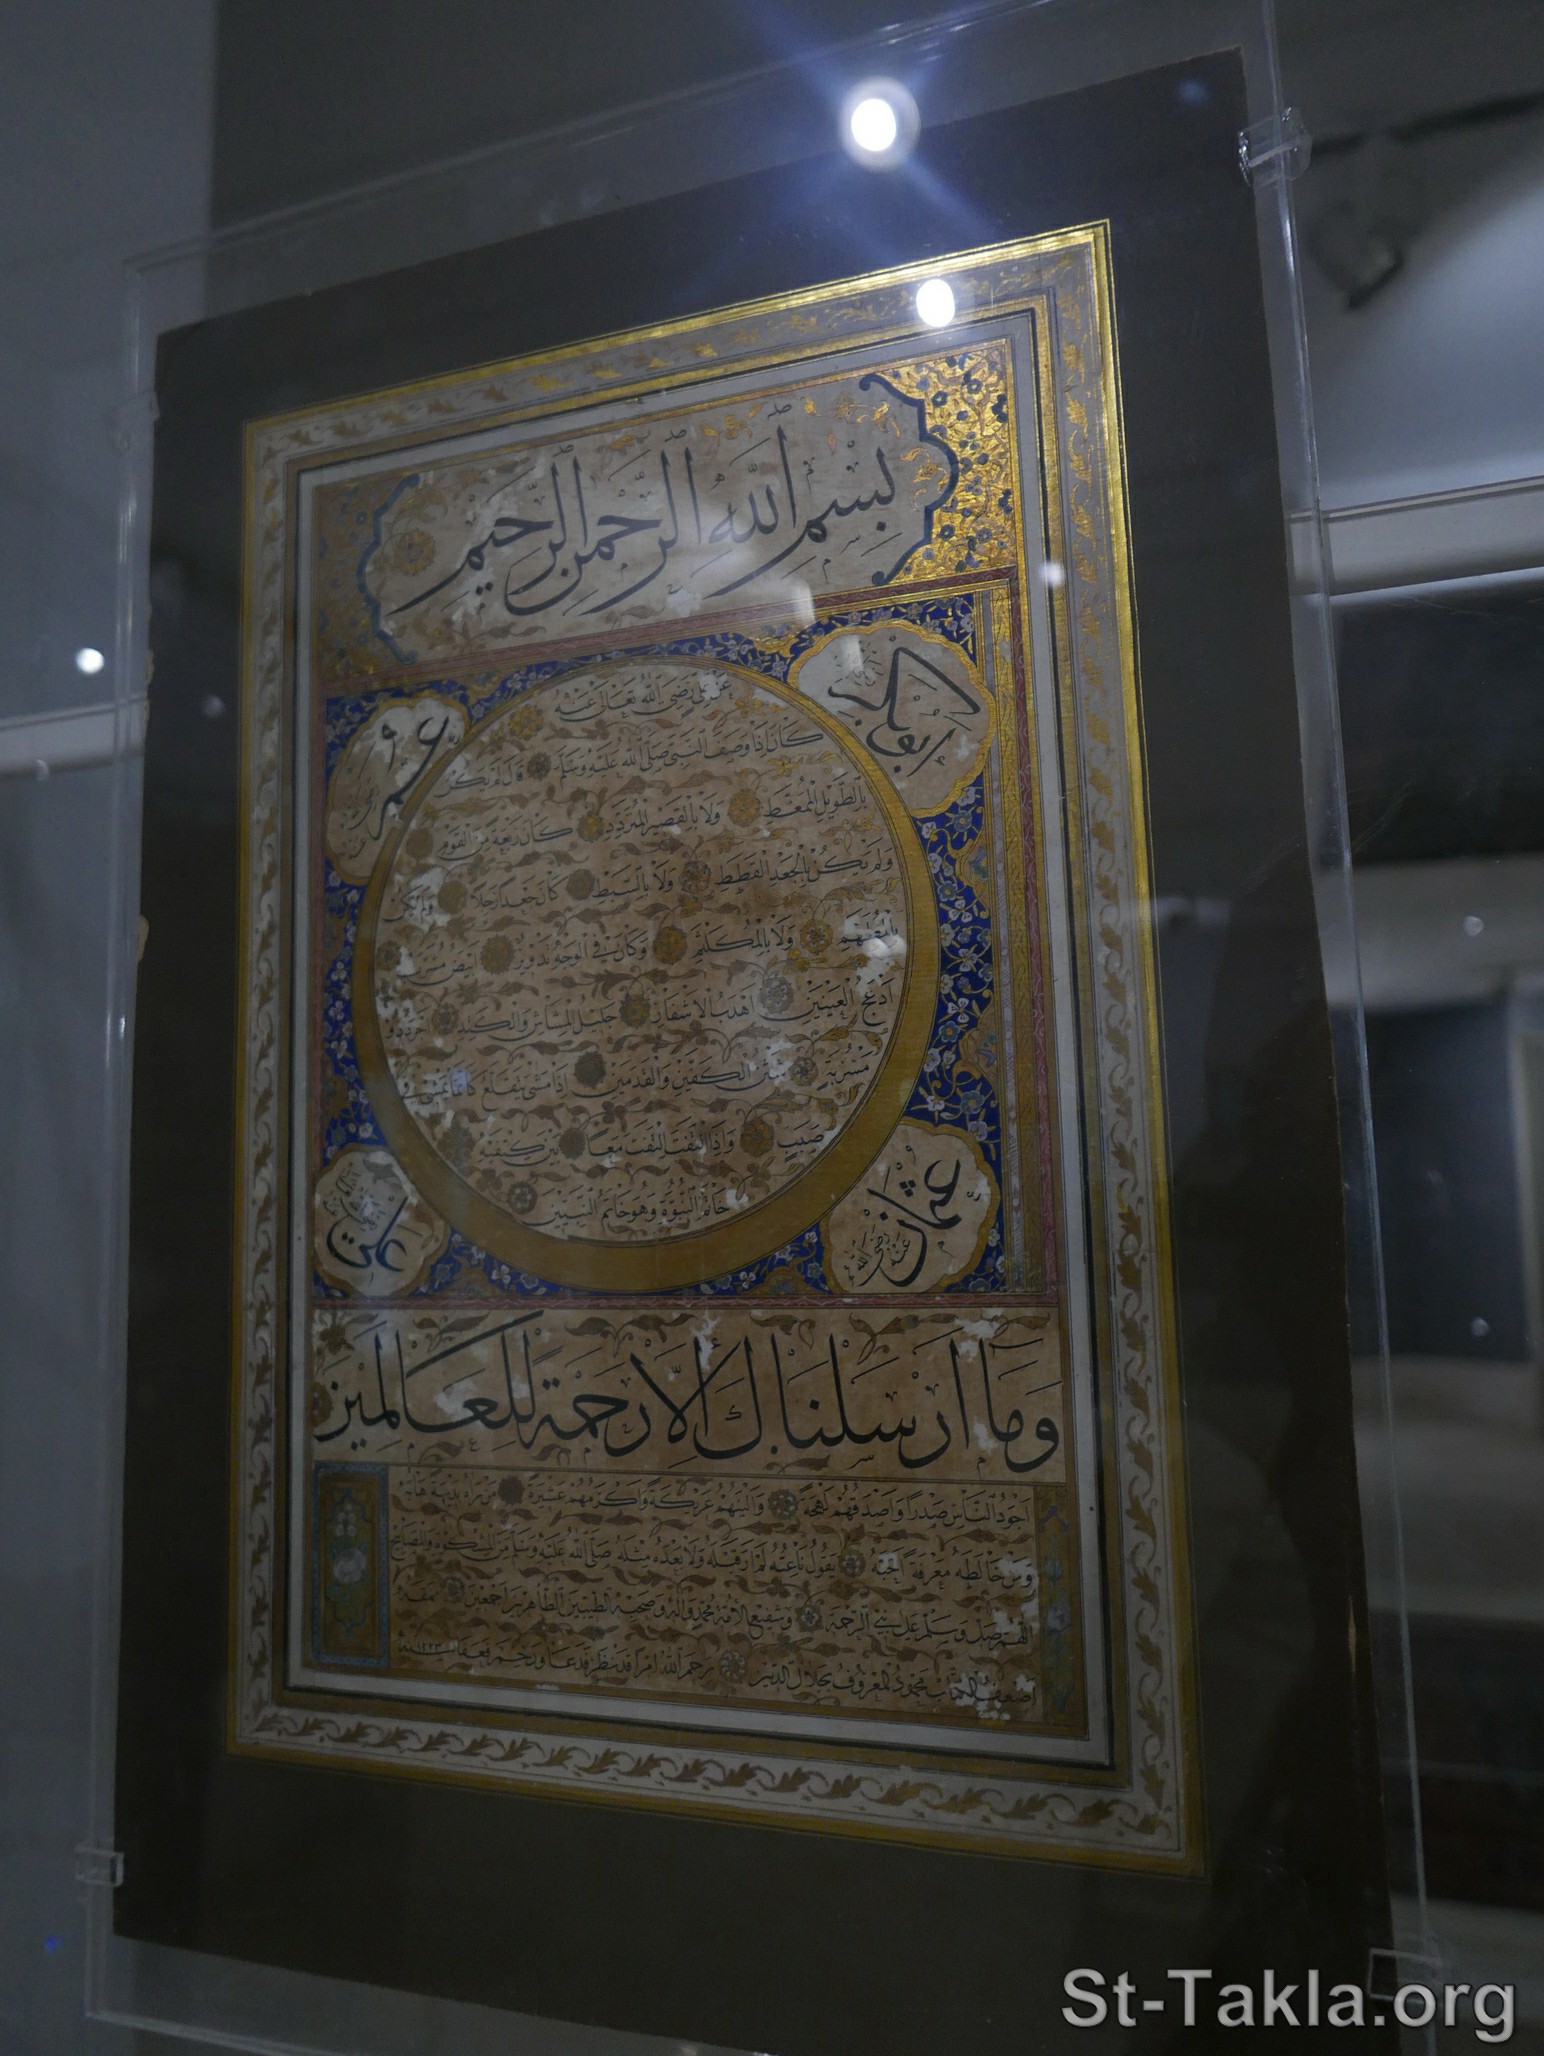 بِسْمِ اللهِ الرَّحْمنِ الرَّحِيمِ
ابو بكر
عمر
عَنْ عَلِيٍّ رَضِيَ اللهُ تَعَالَى عَنْهُ
كَانَ إِذَا وَصَفَ النَّبِيَّ صَلَّى اللهُ عَلَيْهِ وَسَلَّمَ قَالَ لَمْ يَكُنْ
بِالطَّوِيلِ الْمُمَّغِطِ وَلَا بِالْقَصِيرِ الْمُتَرَدِّدِ كَانَ رَبْعَةً مِنَ الْقَوْمِ
وَلَمْ يَكُنْ بِالْجَعْدِ الْقَطَطِ وَلَا بِالسَّبِطِ كَانَ جَعْدًا رَجِلًا وَلَمْ يَكُنْ
بِالْمُطَهَّمِ وَلَا بِالْمُكَلْثَمِ وَكَانَ فِي الْوَجْهِ تَدْوِيرٌ ابيض مشرب
اَدْعَجُ الْعَيْنَيْنِ اَهْدَبُ الْاَشْفَارِ جَلِيلُ الْمُشَاشِ وَالْكَتَدِ اَجْرَدُ ذُو
مَسْرُبَةٍ شَثْنُ الْكَفَّيْنِ وَالْقَدَمَيْنِ اِذَا مَشَى يَتَقَلَّعُ كَاَنَّمَا يَمْشِي فِي
صَبَبٍ وَاِذَا الْتَفَتَ الْتَفَتَ مَعًا بَيْنَ كَتِفَيْهِ
خَاتَمُ النُّبُوَّةِ وَهُوَ خَاتَمُ النَّبِيِّينَ
عثمان رضي الله عنه
علي
وَمَا اَرْسَلْنَاكَ اِلَّا رَحْمَةً لِلْعَالَمِينَ
اَجْوَدُ النَّاسِ صَدْرًا وَاَصْدَقُهُمْ لَهْجَةً وَاَلْيَنُهُمْ عَرِيكَةً وَاَكْرَمُهُمْ عَشِيرَةً مَنْ رَآهُ بَدِيهَةً هَابَهُ
وَمَنْ خَالَطَهُ مَعْرِفَةً اَحَبَّهُ يَقُولُ نَاعِتُهُ لَمْ اَرَ قَبْلَهُ وَلَا بَعْدَهُ مِثْلَهُ صَلَّى اللهُ عَلَيْهِ وَسَلَّمَ مِنَ الْمِشْكَوةِ وَالْمَصَابِيحِ
اللهم صل وسلم على نبي الرحمة وشفيع الأمة محمد وآله وصحبه الطيبين الطاهرين اجمعين نمقه
اضعف الكتاب محمود المعروف بجلال الدين رحم الله امرأ قد نظر قد عا ورحم فعفا سنة ١٢٢٣
St-Takla.org